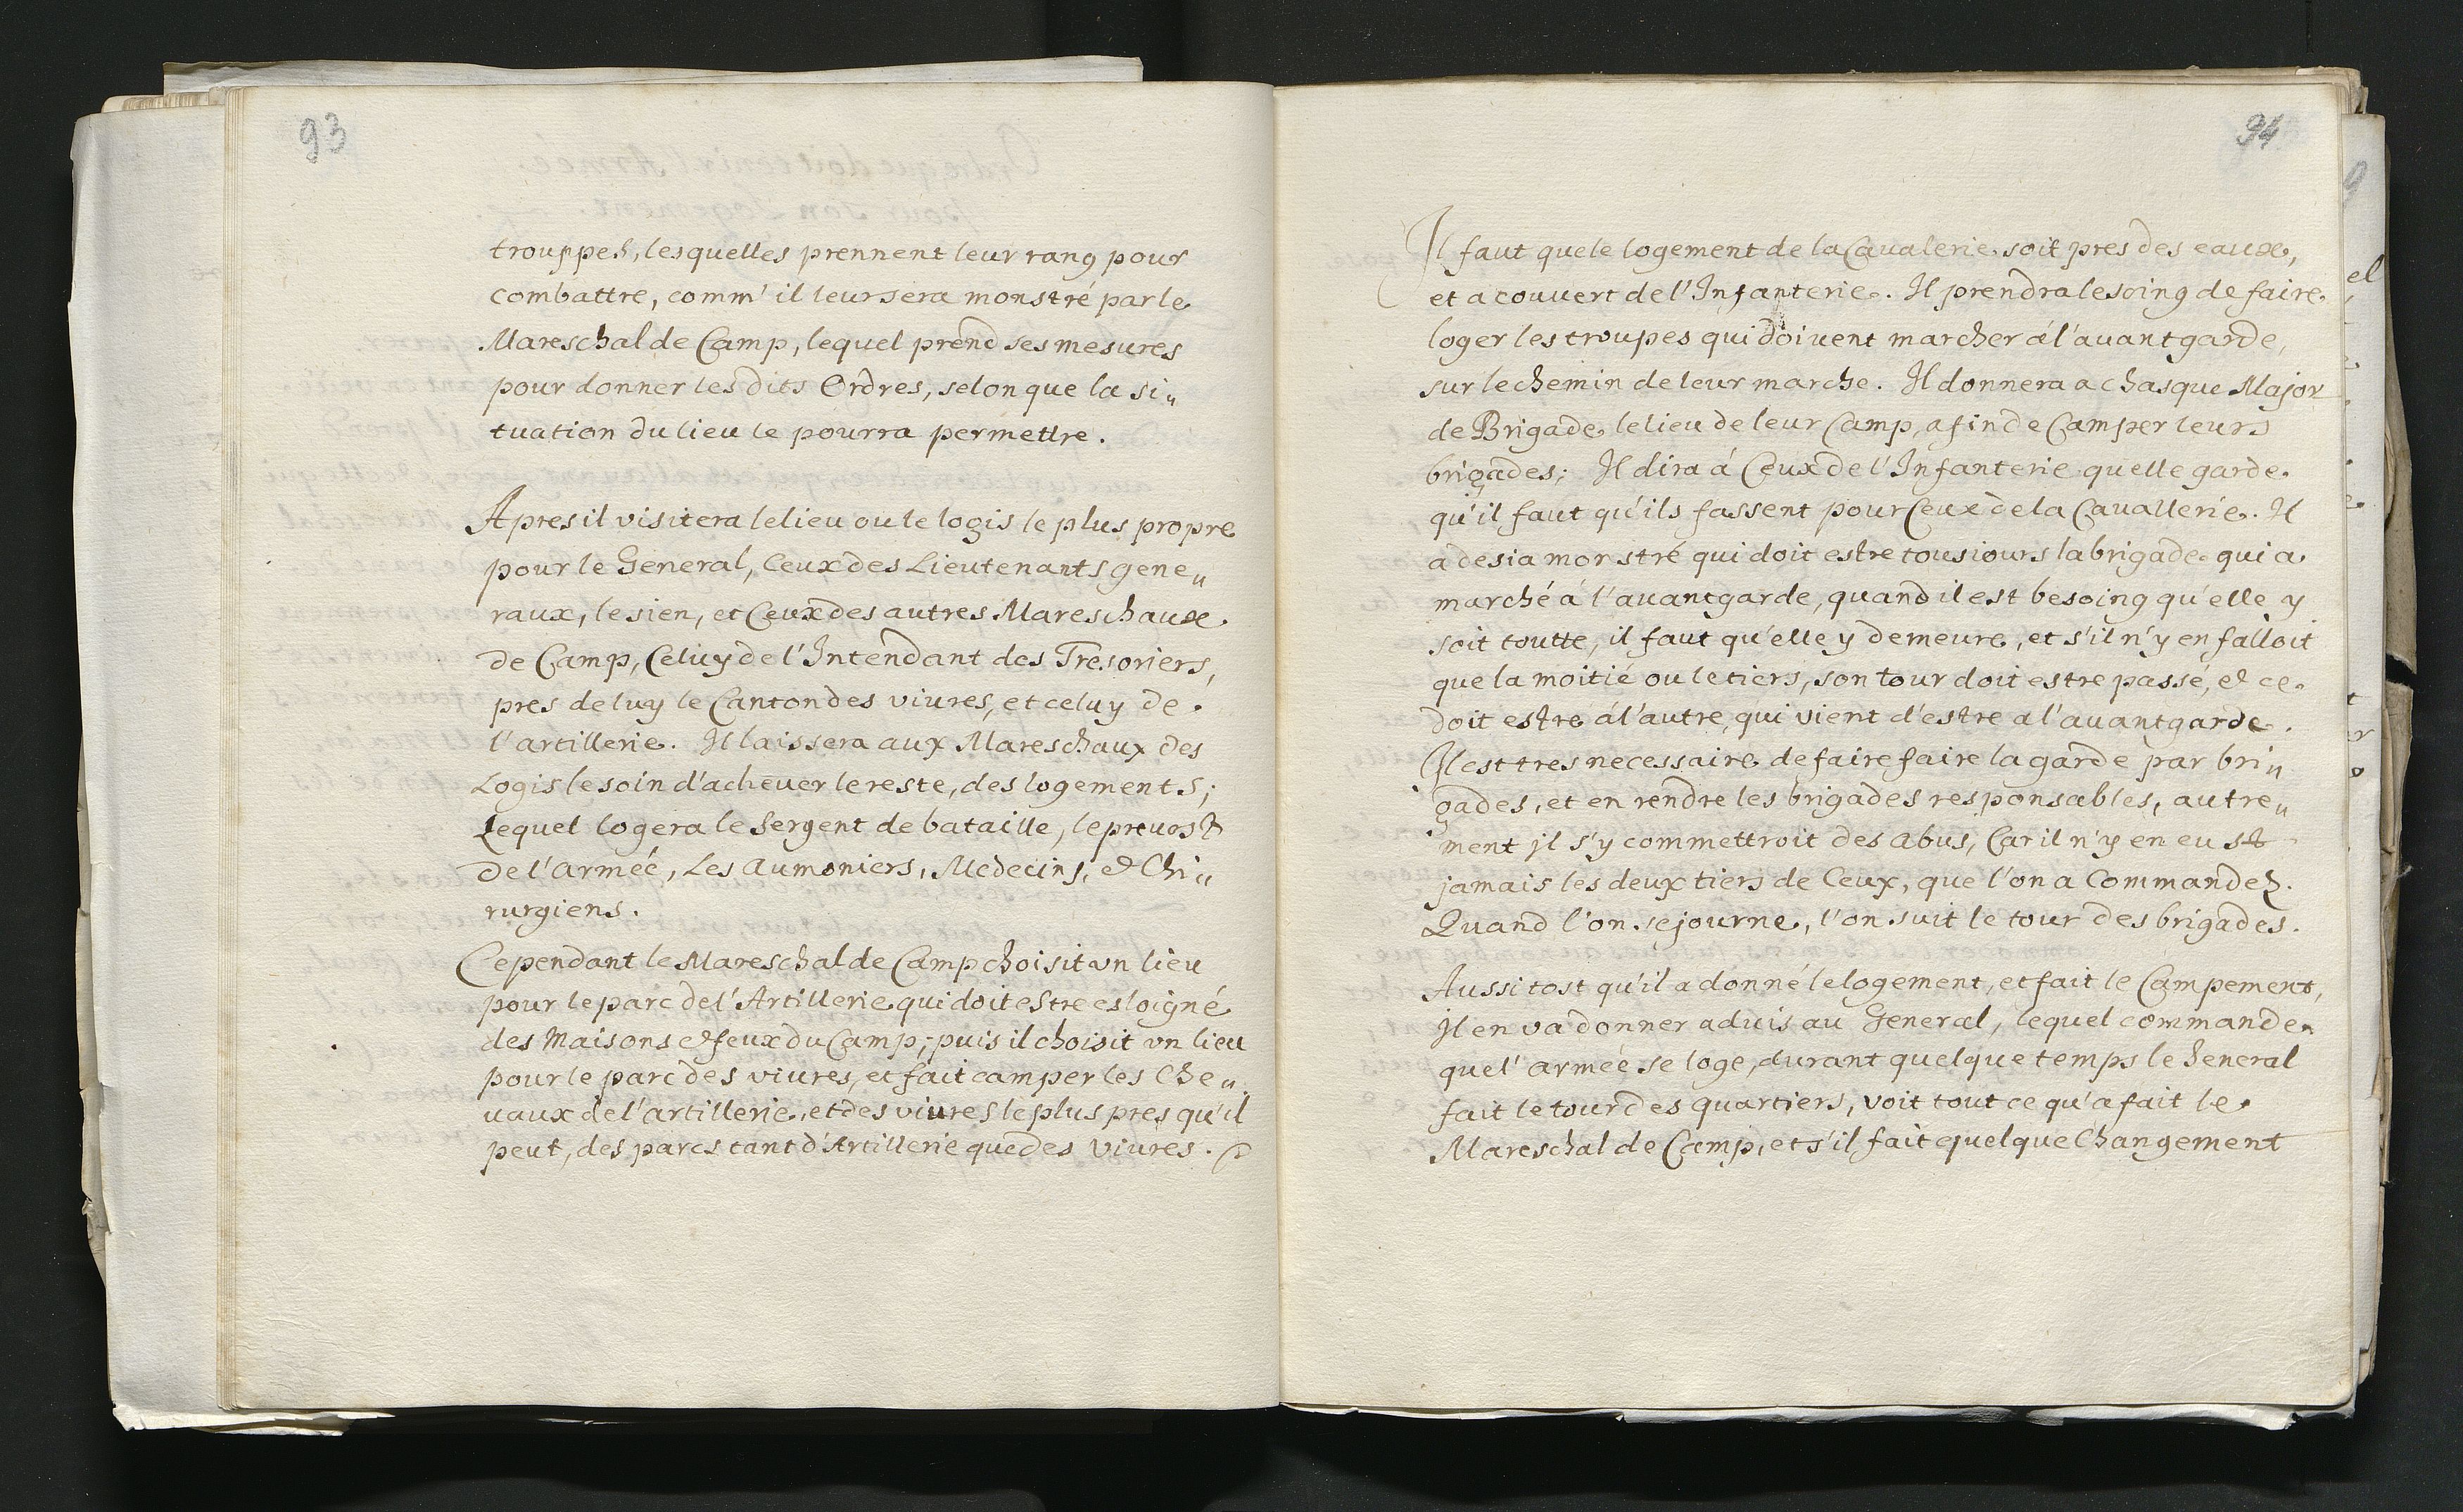 93
trouppes, lesquelles prennent leur rang pour
combattre, comm' il leur sera monstré par le
Mareschal de Camp, lequel prend ses mesures
pour donner les dits Ordres, selon que la si„
tuation du lieu le pourra permettre.
Apres il visitera le lieu ou le logis le plus propre
pour le General, Ceux des Lieutenants gene„
raux, le sien, et Ceux des autres Mareschaux
de Camp, Celuy de l'Intendant des Tresoriers,
pres de luy le Canton des viures, et celuy de
l'artillerie. Il laissera aux Mareschaux des
Logis le soin d'acheuer le reste, des logements;
Lequel logera le Sergent de bataille, le preuost
de l'armeé, Les Aumoniers, Medecins, et Chi„
rurgiens.
Cependant le Mareschal de Camp choisit vn lieu
pour le parc de l'Artillerie qui doit estre esloigné
des Maisons et feux du Camp; puis il choisit vn lieu
pour le parc des viures, et fait camper les Che„
uaux de l'artillerie, et des viures le plus pres qu'il
peut, des parcs tant d'Artillerie que des viures.
94
Il faut que le logement de la Caualerie soit pres des eaux,
et a couuert de l'Infanterie. Il prendra le soing de faire
loger les troupes qui doiuent marcher á l'auantgarde,
sur le chemin de leur marche. Il donnera a chasque Major
de Brigade le lieu de leur Camp, afin de Camper leurs
brigades; Il dira á Ceux de l'Infanterie quelle garde
qu'il faut qu'ils fassent pour Ceux de la Cauallerie. Il
a desia monstré qui doit estre tousiours la brigade qui a
marché á l'auantgarde, quand il est besoing qu'elle y
soit toutte, il faut qu'elle y demeure, et s'il n'y en falloit
que la moitié ou le tiers, son tour doit estre passé, et ce
doit estre á l'autre, qui vient d'estre a l'auantgarde.
Il est tres necessaire de faire faire la garde par bri„
gades, et en rendre les brigades responsables, autre„
ment jl s'y commettroit des abus, Car il n'y en eust
jamais les deux tiers de Ceux, que l'on a Commandez.
Quand l'on sejourne, l'on suit le tour des brigades.
Aussi tost qu'il a donné le logement, et fait le Campement,
jl en va donner aduis au General, lequel commande
que l'armeé se loge, durant quelque temps le General
fait le tour des quartiers, voit tout ce qu'a fait le
Mareschal de Camp, et s'il fait quelque Changement